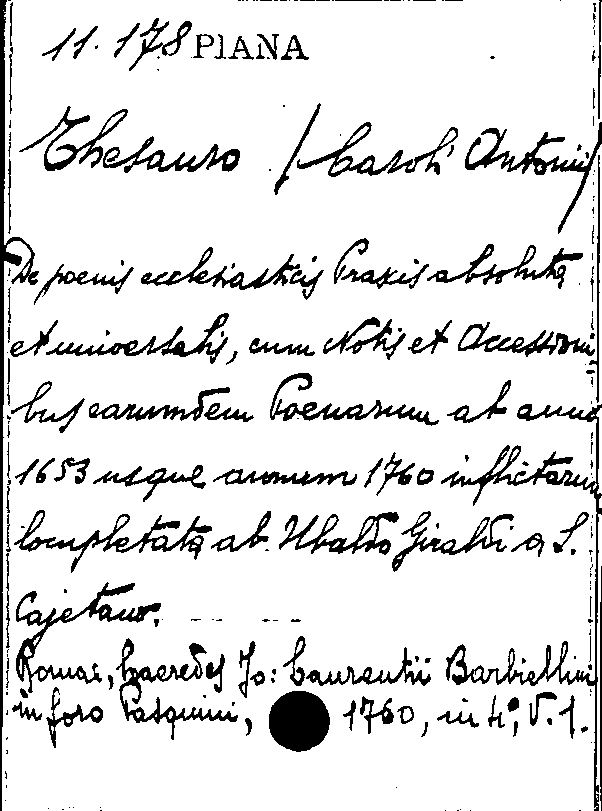 11. 178 PIANA
Thesauro / Caroli Antonii /
De poenis ecclesiasticis Praxis absoluta
et universalis, cum Notis et Accessioni-
bus earumdem Poenarum ab anno
1653 usque annum 1760 inflictarum
completata ab Ubaldo Giraldi a S.
Cajetano.
Romae, haeredes Jo: Laurentii Barbiellini
in foro Pasquini, 1760, in 4°, V. 1.